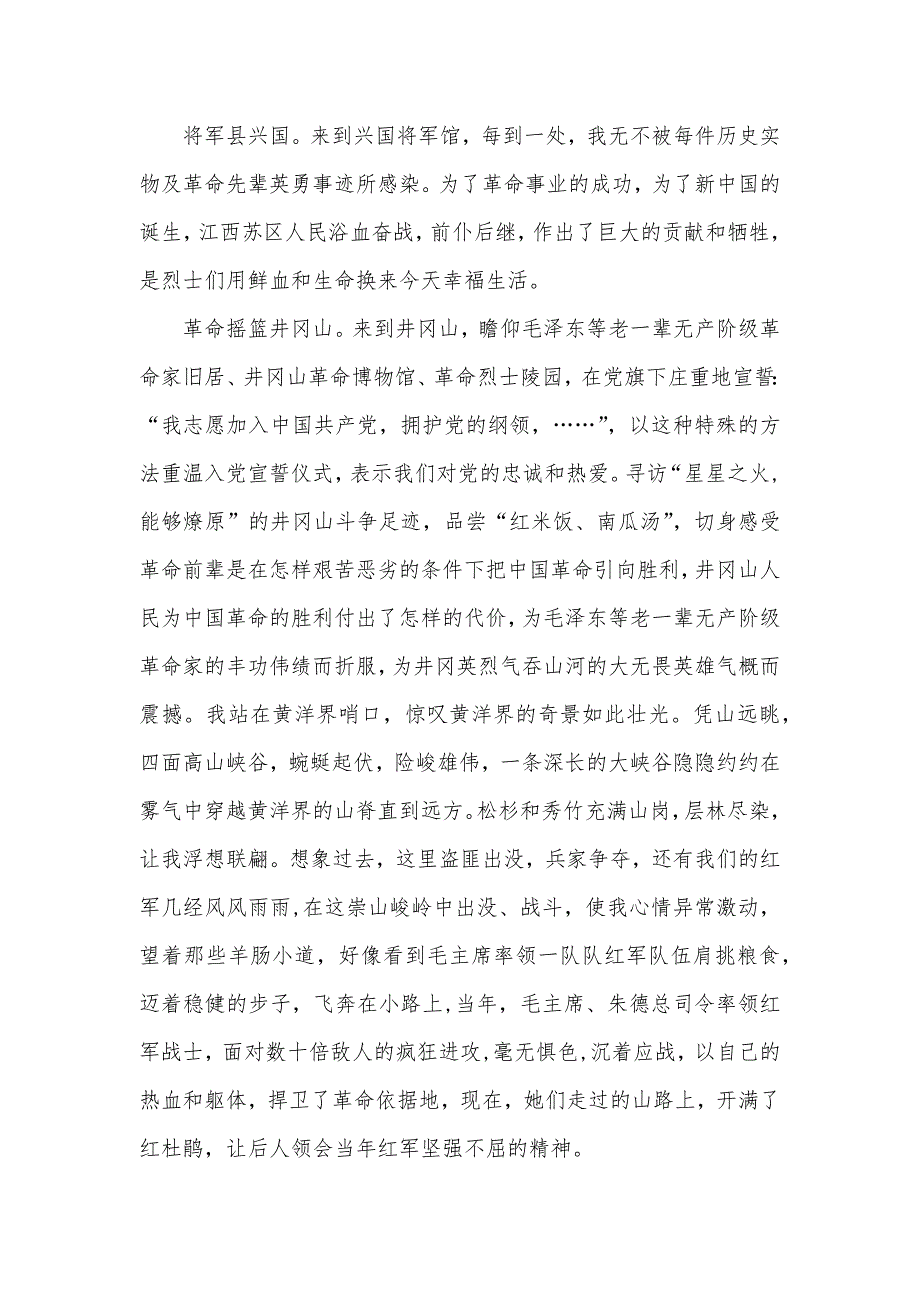 将军县兴国。来到兴国将军馆，每到一处，我无不被每件历史实
物及革命先辈英勇事迹所感染。为了革命事业的成功，为了新中国的
诞生，江西苏区人民浴血奋战，前仆后继，作出了巨大的贡献和牺牲，
是烈士们用鲜血和生命换来今天幸福生活。
革命摇篮井冈山。来到井冈山，瞻仰毛泽东等老一辈无产阶级革
命家旧居、井冈山革命博物馆、革命烈士陵园，在党旗下庄重地宣誓：
“我志愿加入中国共产党，拥护党的纲领，……”，以这种特殊的方
法重温入党宣誓仪式，表示我们对党的忠诚和热爱。寻访“星星之火,
能够燎原”的井冈山斗争足迹，品尝“红米饭、南瓜汤”，切身感受
革命前辈是在怎样艰苦恶劣的条件下把中国革命引向胜利，井冈山人
民为中国革命的胜利付出了怎样的代价，为毛泽东等老一辈无产阶级
革命家的丰功伟绩而折服，为井冈英烈气吞山河的大无畏英雄气概而
震撼。我站在黄洋界哨口，惊叹黄洋界的奇景如此壮光。凭山远眺，
四面高山峡谷，蜿蜒起伏，险峻雄伟，一条深长的大峡谷隐隐约约在
雾气中穿越黄洋界的山脊直到远方。松杉和秀竹充满山岗，层林尽染，
让我浮想联翩。想象过去，这里盗匪出没，兵家争夺，还有我们的红
军几经风风雨雨,在这崇山峻岭中出没、战斗，使我心情异常激动，
望着那些羊肠小道，好像看到毛主席率领一队队红军队伍肩挑粮食，
迈着稳健的步子，飞奔在小路上,当年，毛主席、朱德总司令率领红
军战士，面对数十倍敌人的疯狂进攻,毫无惧色,沉着应战，以自己的
热血和躯体，捍卫了革命依据地，现在，她们走过的山路上，开满了
红杜鹃，让后人领会当年红军坚强不屈的精神。